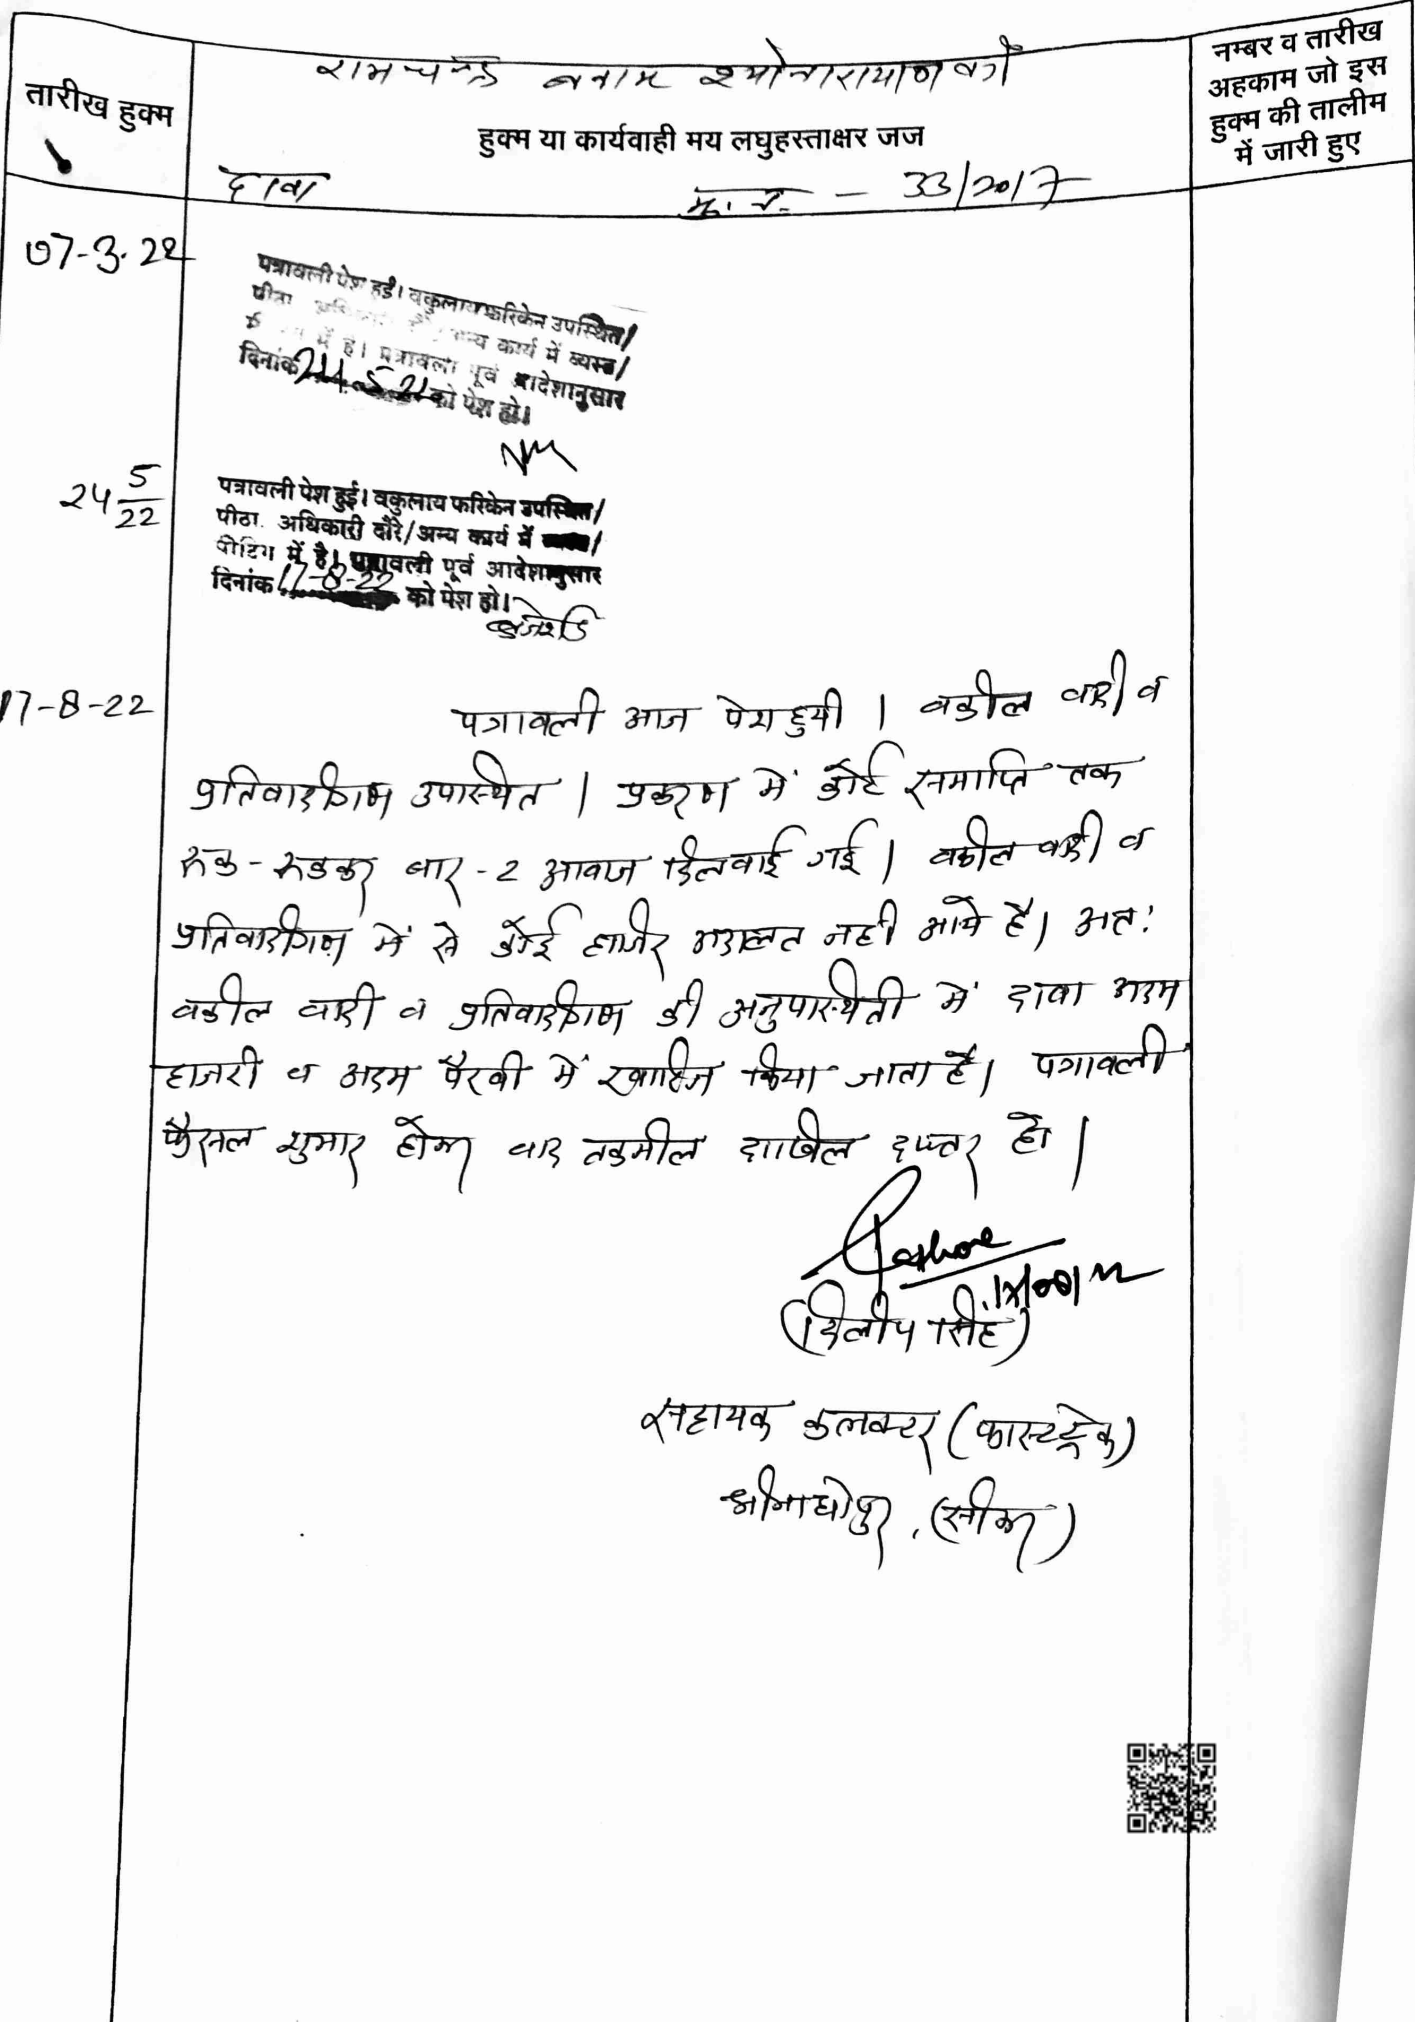 रामचन्द्र बनाम श्योनारायण वगै
तारीख हुक्म
हुक्म या कार्यवाही मय लघुहस्ताक्षर जज
नम्बर व तारीख
अहकाम जो इस
हुक्म की तालीम
में जारी हुए
दावा मु. नं. - 33/2017
07-3-22
पत्रावली पेश हुई। वकुलाय फरिकेन उपस्थित/
पीठा अन्य कार्य में व्यस्त/
में है। पत्रावली पूर्व आदेशानुसार
दिनांक 24.5.22 को पेश हो।
24 5/22
पत्रावली पेश हुई। वकुलाय फरिकेन उपस्थित/
पीठा. अधिकारी दौरे/अन्य कार्य में व्यस्त/
मीटिंग में है। पत्रावली पूर्व आदेशानुसार
दिनांक 17-8-22 को पेश हो।
17-8-22
पत्रावली आज पेश हुयी। वकील वादी व
प्रतिवादीगण उपस्थित। प्रकरण में कोर्ट समाप्ति तक
रुक-रुककर बार-2 आवाज दिलवाई गई। वकील वादी व
प्रतिवादीगण में से कोई हाजिर अदालत नही आये है। अतः
वकील वादी व प्रतिवादीगण की अनुपास्थिती में दावा अदम
हाजरी व अदम पैरवी में खारिज किया जाता है। पत्रावली
फैसल सुमार होकर बाद तकमील दाखिल दफ्तर हो।
(दिलीप सिंह)
सहायक कलक्टर (फास्टट्रेक)
श्रीमाधोपुर, (सीकर)